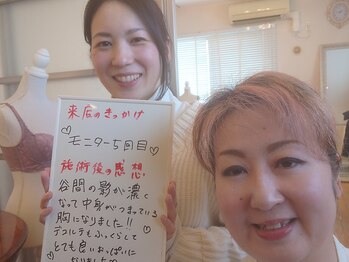 来店のきっかけ
♡モニター5回目♡
施術後の感想
谷間の影が濃く
なって中身がつまっている
胸になりました!!
デコルテもふっくらして
とても良いおっぱいに
なりました♡